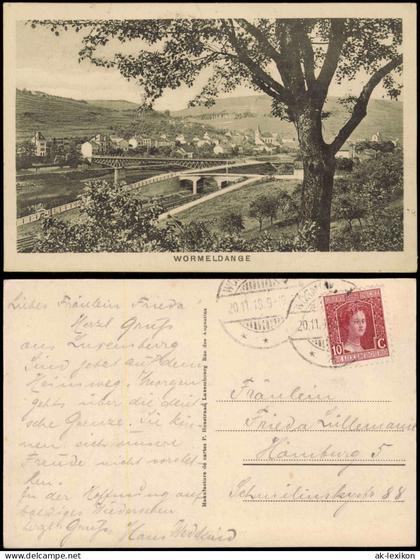 WORMELDANGE
Liebes Fräulein Frieda
Herzl. Gruß
aus Luxemburg
Sind jetzt auf dem
Heimweg. Morgen
gehts über die deut-
sche Grenze. Sie kön-
nen sich unsere
Freude nicht vorstel-
len.
In der Hoffnung auf
baldiges Wiedersehen
Herzl. Gruß Hans
Manufacture de cartes P. Houstraas, Luxembourg Rue des Augustins
20.11.18.9-
20.11.
10 C
Fräulein
Frieda Lüllemann
Hamburg 5
88
ak-lexikon
© www.ak-lexikon.de